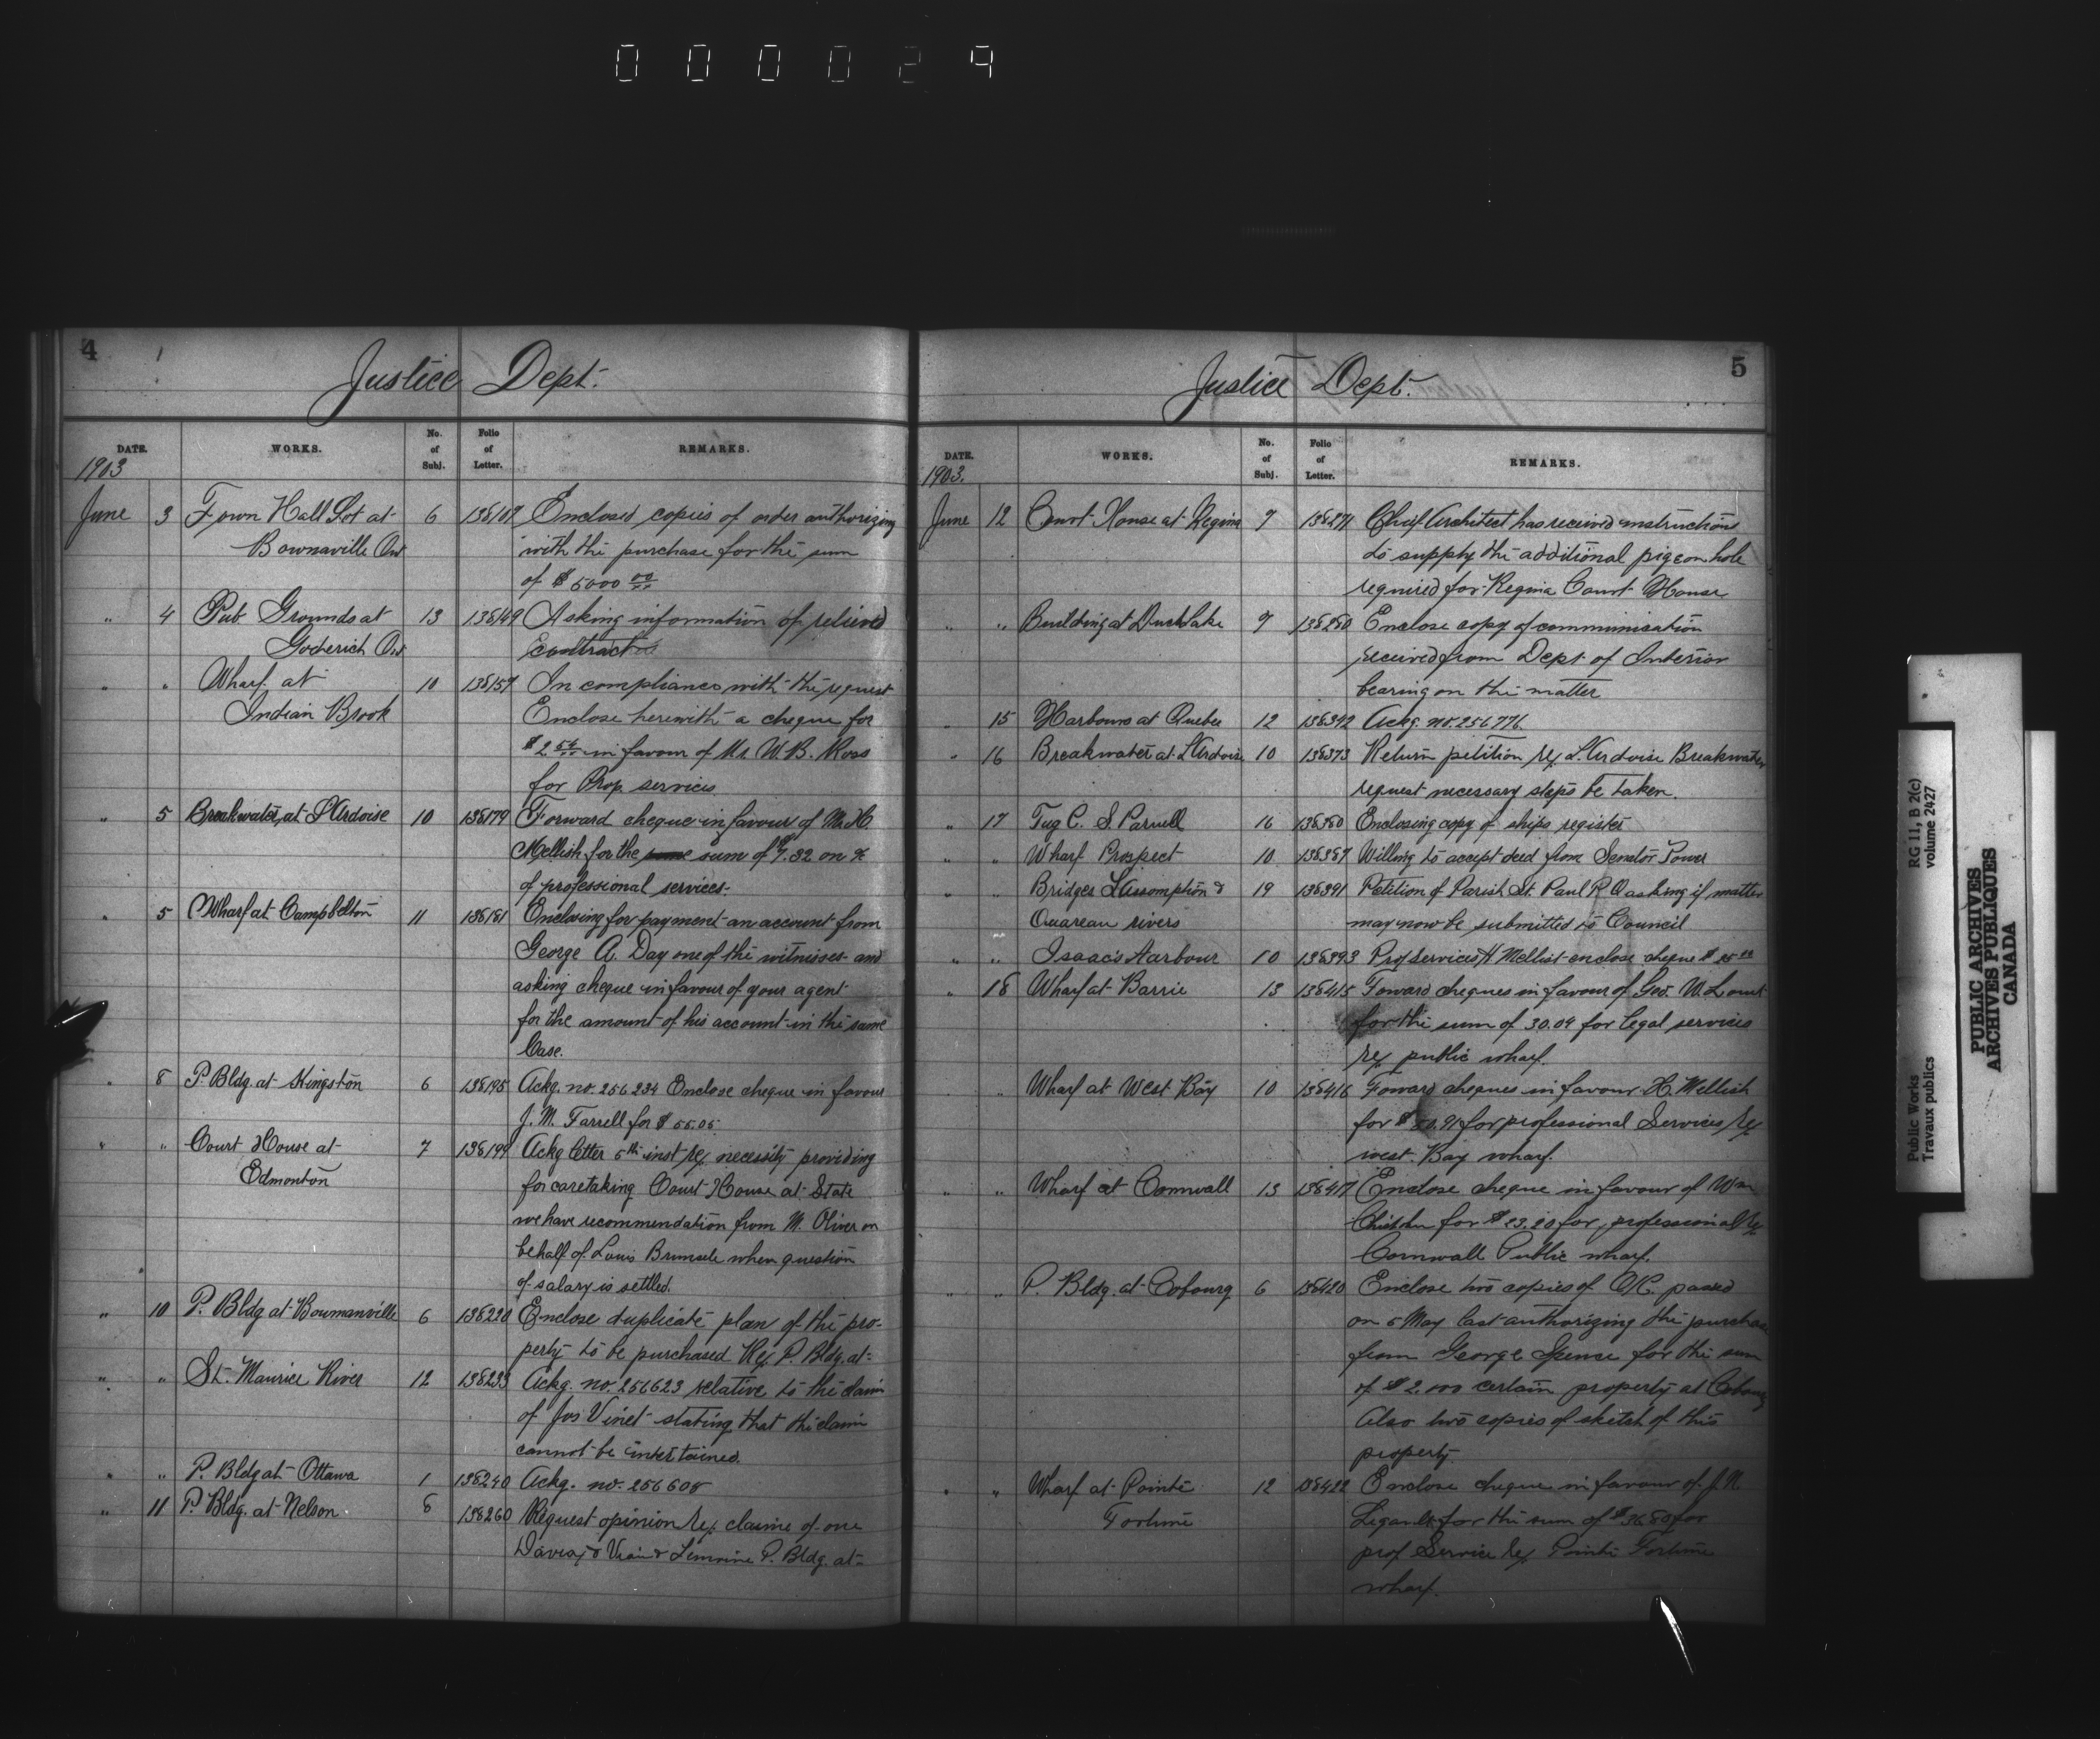 000029
4
Justice Dept.
DATE. WORKS. No. of Subj. Folio of Letter. REMARKS.
1903
June 3 Town Hall Lot at 6 138107 Enclosed copies of order authorizing
Bownaville Ont with the purchase for the sum
of $5000 00/xx
" 4 Pub Grounds at 13 138149 Asking information of relieved
Goderich Ont contract
" " Wharf at 10 138157 In compliance with the request
Indian Brook Enclose herewith a cheque for
in favour of Mr. W. B. Ross
for Prop services
" 5 Breakwater, at L'Ardoise 10 138179 Forward cheque in favour of Mr. H.
Mellish for the sum of $7.32 on %
of professional services.
" 5 Wharf at Campbelton 11 138181 Enclosing for payment an account from
George A. Day one of the witnesses and
asking cheque in favour of your agent
for the amount of his account in the same
Case.
" 8 P. Bldg. at Kingston 6 138195 Ackg. no. 256234 Enclose cheque in favour
J. M. Farrell for $55.05
" " Court House at 7 138199 Ackg letter 5th inst re/ necessity providing
Edmonton for caretaking Court House at State
we have recommendation from M. Oliver on
behalf of Louis when question
of salary is settled.
" 10 P. Bldg at Bowmanville 6 138220 Enclose duplicate plan of the pro-
perty to be purchased Re/ P. Bldg. at
" " St. Maurice River 12 138233 Ackg. no. 256623 relative to the claim
of Jos Vinet stating that the claim
cannot be intertained.
" " P. Bldg at Ottawa 1 138240 Ackg. no. 256605
" 11 P. Bldg. at Nelson 8 138260 Request opinion re/ claime of one
P. Bldg. at
5
Justice Dept.
DATE. WORKS. No. of Subj. Folio of Letter. REMARKS.
1903.
June 12 Court House at Regina 7 138271 Chief Architect has received instructions
to supply the additional pigeon hole
required for Regina Court House
" " Building at Duck Lake 7 138280 Enclose copy of communication
received from Dept of Interior
bearing on the matter
" 15 Harbours at Quebec 12 138342 Ackg. no. 256776.
" 16 Breakwater at L'Ardoise 10 138373 Return petition re/ L'Ardoise Breakwater
request necessary steps be taken.
" 17 Tug C. S. Parnell 16 138380 Enclosing copy of ships register
" " Wharf Prospect 10 138387 Willing to accept deed from Senator Power
" " Bridges L'Assomption & 19 138391 Petition of Parish St. Paul P.Q asking if matter
Ouareau rivers may now be submitted to Council
" " Isaac's Harbour 10 138393 Prof Services H Mellish enclose cheque
" 18 Wharf at Barrie 13 138415 Foward cheques in favour of Geo. W. Lount
for the sum of 30.09 for legal services
re/ public wharf.
" Wharf at West Bay 10 138416 Foward cheques in favour H. Mellish
for professional Services re/
west Bay wharf.
" " Wharf at Cornwall 13 138417 Enclose cheque in favour of Wm
for $23.20 for professional re/
Cornwall Public wharf.
" " P. Bldg. at Cobourg 6 138420 Enclose two copies of O/C. passed
on 5 May last authorizing the purchase
from George Spence for the sum
of $2.000 certain property at Cobourg
Also two copies of sketch of this
property.
" " Wharf at Pointe 12 138422 Enclose cheque in favour of J. N.
Fortune for the sum of $36.80 for
prof Service re/ Pointe Fortune
wharf.
Public Works
Travaux publics
RG 11, B 2(c)
volume 2427
PUBLIC ARCHIVES
ARCHIVES PUBLIQUES
CANADA